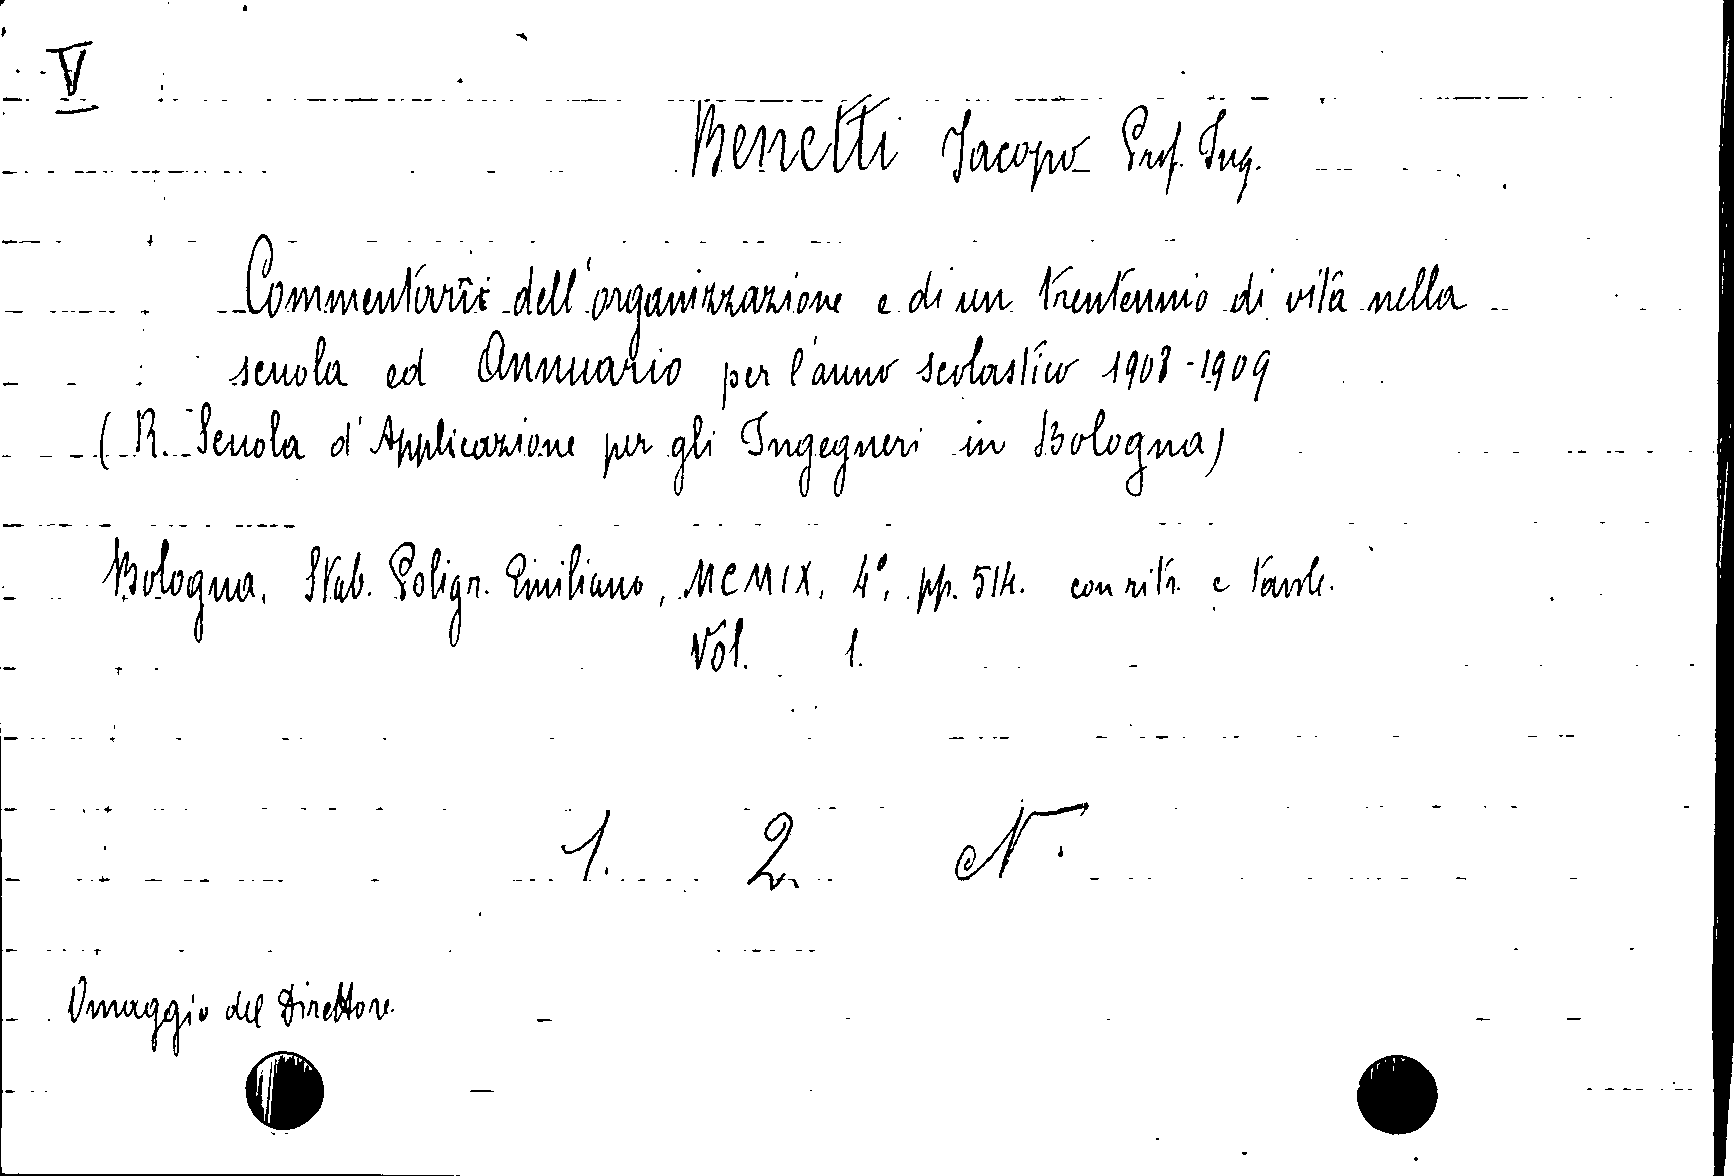 V
Benetti Jacopo Prof. Ing.
Commentarii dell'organizzazione e di un trentennio di vita nella
scuola ed Annuario per l'anno scolastico 1908-1909
(R. Scuola d'Applicazione per gli Ingegneri in Bologna)
Bologna, Stab. Poligr. Emiliano, MCMIX, 4°, pp. 514. con ritr. e tavole.
Vol. 1.
1. 2. N.
Omaggio del Direttore